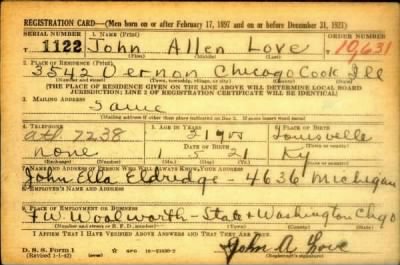 REGISTRATION CARD—(Men born on or after February 17, 1897 and on or before December 31, 1921)
SERIAL NUMBER 1. NAME (Print) ORDER NUMBER
1122 John Allen Love 10,631
(First) (Middle) (Last)
2. PLACE OF RESIDENCE (Print)
3542 Vernon Chicago Cook Ill
(Number and street) (Town, township, village, or city) (County) (State)
[THE PLACE OF RESIDENCE GIVEN ON THE LINE ABOVE WILL DETERMINE LOCAL BOARD
JURISDICTION; LINE 2 OF REGISTRATION CERTIFICATE WILL BE IDENTICAL]
3. MAILING ADDRESS
Same
[Mailing address if other than place indicated on line 2. If same insert word same]
4. TELEPHONE 5. AGE IN YEARS 6. PLACE OF BIRTH
7238 21 Louisville
DATE OF BIRTH
none 1 5 21 Ky
(Exchange) (Number) (Mo.) (Day) (Yr.) (State or country)
7. NAME AND ADDRESS OF PERSON WHO WILL ALWAYS KNOW YOUR ADDRESS
John Ella Eldridge - 4636 Michigan
8. EMPLOYER'S NAME AND ADDRESS
F.W. Woolworth - State & Washington Chgo
9. PLACE OF EMPLOYMENT OR BUSINESS
(Number and street or R. F. D. number) (Town) (County) (State)
I AFFIRM THAT I HAVE VERIFIED ABOVE ANSWERS AND THAT THEY ARE TRUE.
D. S. S. Form 1
(Revised 1-1-42) GPO John A Love
(Registrant's signature)